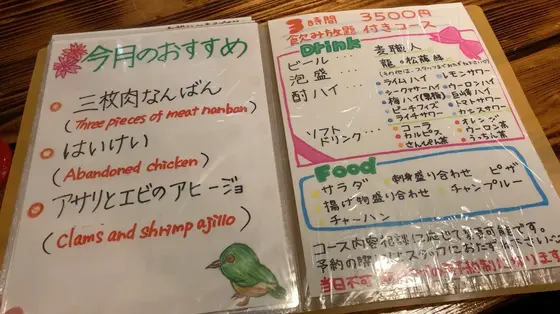 今月のおすすめ
三枚肉なんばん
(Three pieces of meat nanban)
はいけい
(Abandoned chicken)
アサリとエビのアヒージョ
(Clams and shrimp ajillo)
3時間 3500円
飲み放題 付きコース
Drink
ビール… 麦職人
泡盛…
酎ハイ…
ライムハイ レモンサワー
シークァサーハイ ウーロンハイ
梅ハイ 巨峰ハイ
ピーチフィズ トマトサワー
ライチサワー カシスサワー
ソフト
ドリンク…
コーラ オレンジ
カルピス ウーロン茶
さんぴん茶 うっちん茶
Food
サラダ 刺身盛り合わせ ピザ
揚げ物盛り合わせ チャンプルー
チャーハン
コース内容
予約の際に
当日不可